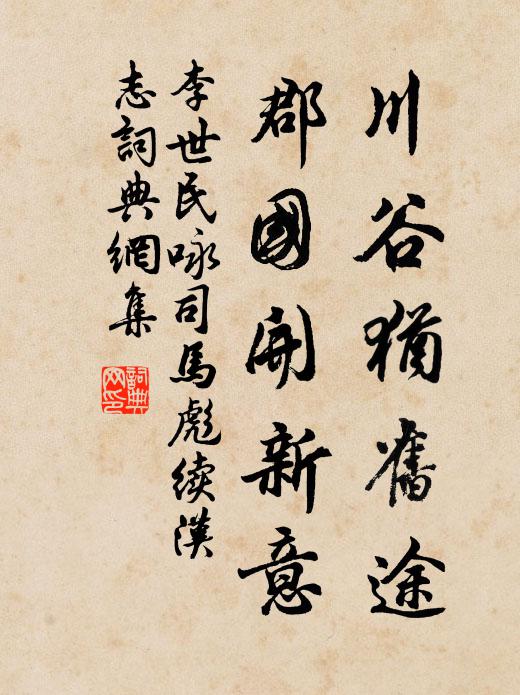 川谷猶舊途
郡國開新意
李世民咏司馬彪續漢
志詞典網集
詞典網印